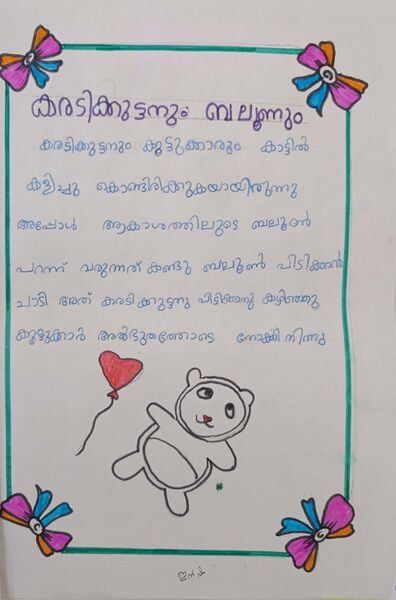 കരടിക്കുട്ടനും ബലൂണും
കരടിക്കുട്ടനും കൂട്ടുക്കാരും കാട്ടിൽ
കളിച്ചു കൊണ്ടിരിക്കുകയായിരുന്നു
അപ്പോൾ ആകാശത്തിലൂടെ ബലൂൺ
പറന്ന് വരുന്നത് കണ്ടു ബലൂൺ പിടിക്കാൻ
ചാടി അത് കരടിക്കുട്ടനു പിടിക്കാനു കഴിഞ്ഞു
കൂട്ടുക്കാർ അൽഭുതത്തോടെ നോക്കി നിന്നു